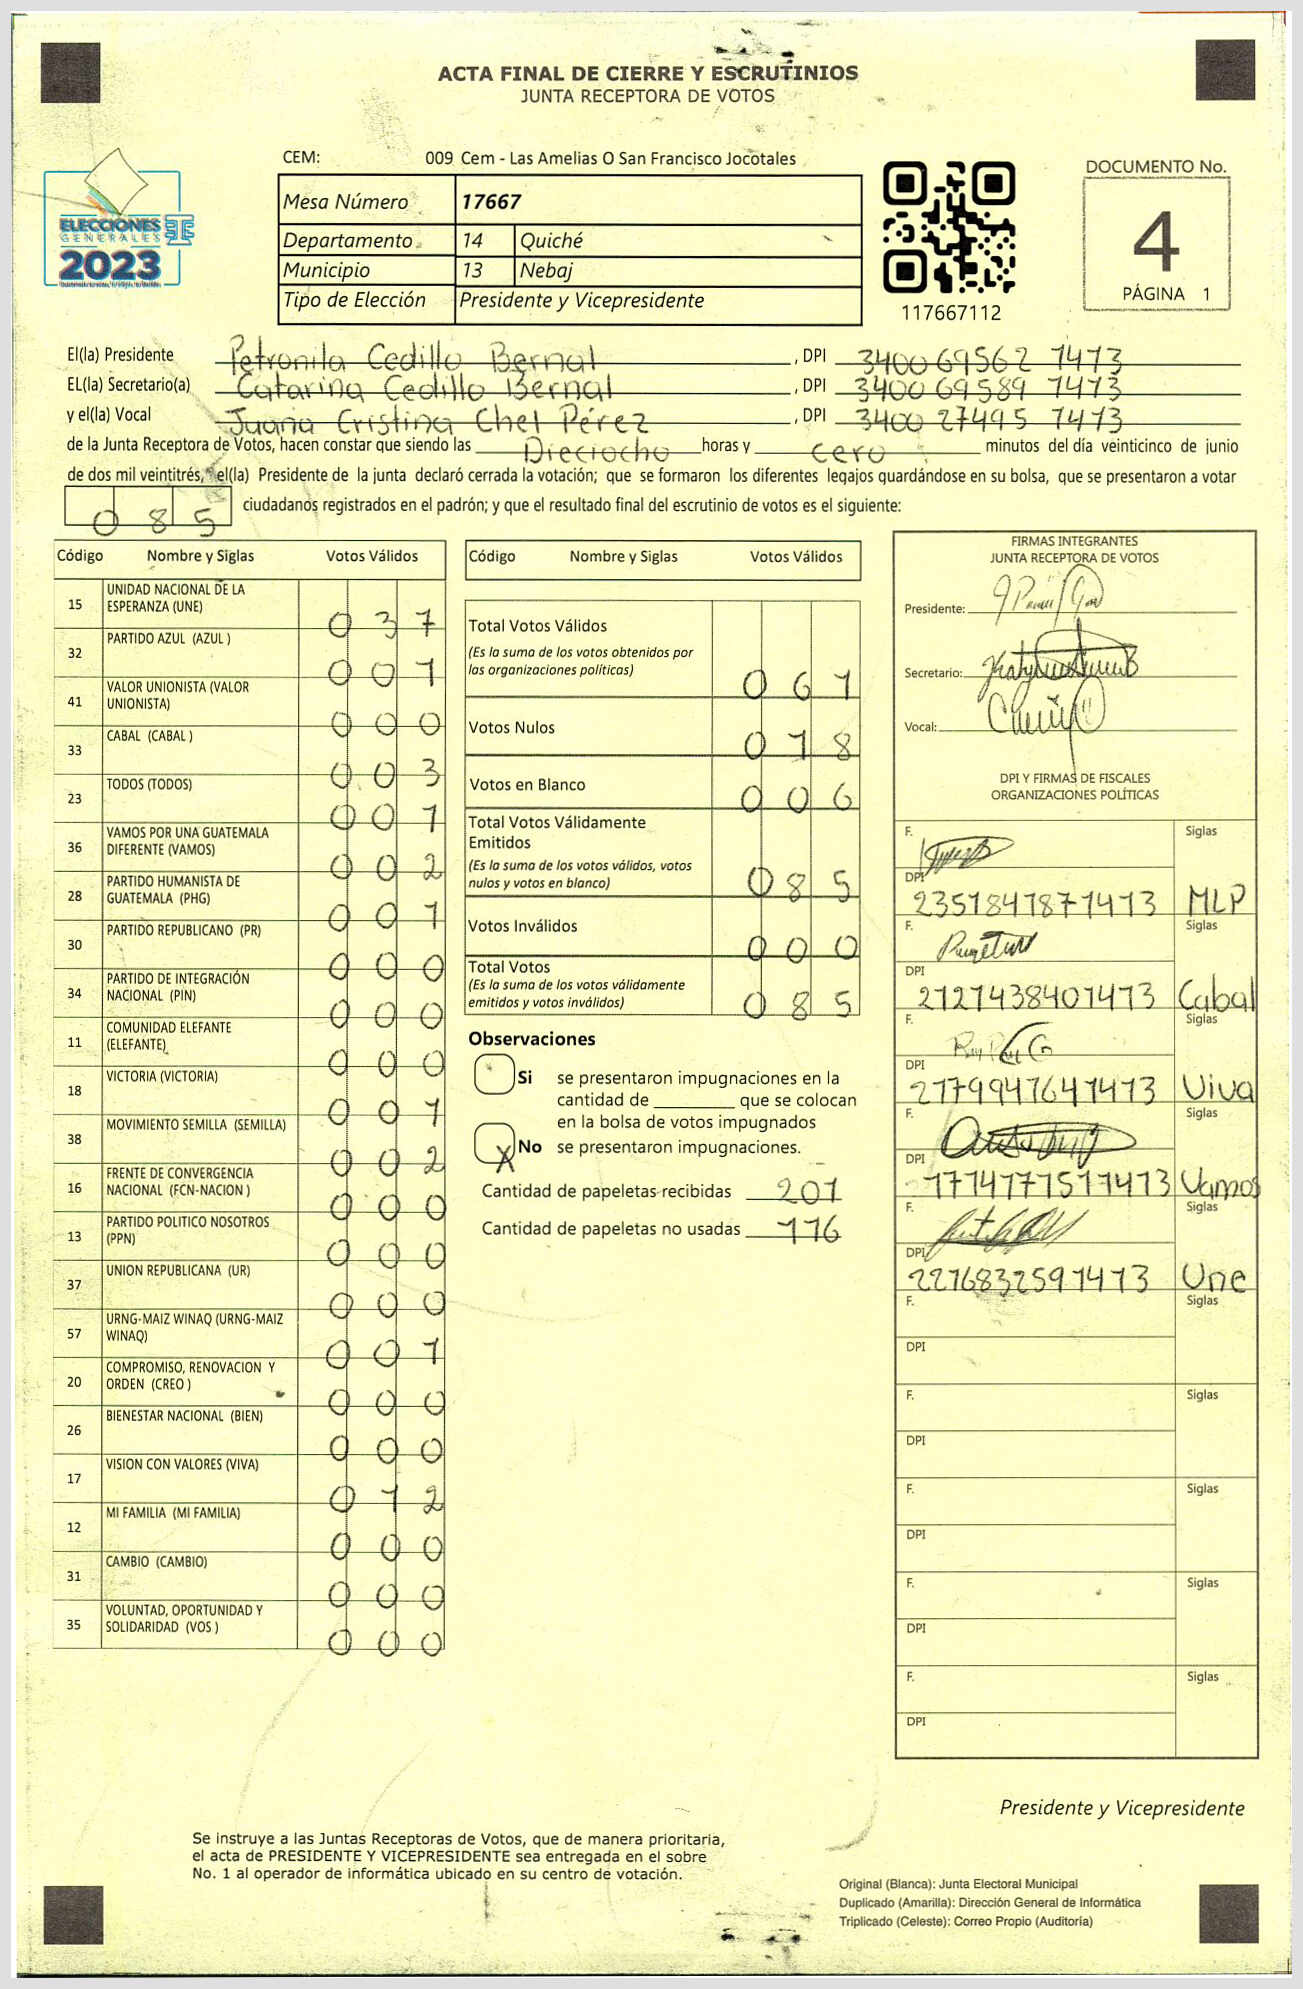 ACTA FINAL DE CIERRE Y ESCRUTINIOS
JUNTA RECEPTORA DE VOTOS
CEM: 009 Cem - Las Amelias O San Francisco Jocotales
ELECCIONES
GENERALES
2023
Mesa Número 17667
Departamento 14 Quiché
Municipio 13 Nebaj
Tipo de Elección Presidente y Vicepresidente
117667112
DOCUMENTO No.
4
PÁGINA 1
El(la) Presidente Petronila Cedillo Bernal, DPI 3400 69562 1413
EL(la) Secretario(a) Catarina Cedillo Bernal, DPI 3400 69589 1413
y el(la) Vocal Juana Cristina Chel Pérez, DPI 3400 27495 1413
de la Junta Receptora de Votos, hacen constar que siendo las Dieciocho horas y cero minutos del día veinticinco de junio
de dos mil veintitrés, el(la) Presidente de la junta declaró cerrada la votación; que se formaron los diferentes legajos guardándose en su bolsa, que se presentaron a votar
085 ciudadanos registrados en el padrón; y que el resultado final del escrutinio de votos es el siguiente:
Código Nombre y Siglas Votos Válidos
15 UNIDAD NACIONAL DE LA ESPERANZA (UNE) 037
32 PARTIDO AZUL (AZUL ) 001
41 VALOR UNIONISTA (VALOR UNIONISTA) 000
33 CABAL (CABAL ) 003
23 TODOS (TODOS) 001
36 VAMOS POR UNA GUATEMALA DIFERENTE (VAMOS) 002
28 PARTIDO HUMANISTA DE GUATEMALA (PHG) 001
30 PARTIDO REPUBLICANO (PR) 000
34 PARTIDO DE INTEGRACIÓN NACIONAL (PIN) 000
11 COMUNIDAD ELEFANTE (ELEFANTE) 000
18 VICTORIA (VICTORIA) 001
38 MOVIMIENTO SEMILLA (SEMILLA) 002
16 FRENTE DE CONVERGENCIA NACIONAL (FCN-NACION ) 000
13 PARTIDO POLITICO NOSOTROS (PPN) 000
37 UNION REPUBLICANA (UR) 000
57 URNG-MAIZ WINAQ (URNG-MAIZ WINAQ) 001
20 COMPROMISO, RENOVACION Y ORDEN (CREO ) 000
26 BIENESTAR NACIONAL (BIEN) 000
17 VISION CON VALORES (VIVA) 012
12 MI FAMILIA (MI FAMILIA) 000
31 CAMBIO (CAMBIO) 000
35 VOLUNTAD, OPORTUNIDAD Y SOLIDARIDAD (VOS ) 000
Código Nombre y Siglas Votos Válidos
Total Votos Válidos 061
(Es la suma de los votos obtenidos por
las organizaciones políticas)
Votos Nulos 018
Votos en Blanco 006
Total Votos Válidamente
Emitidos 085
(Es la suma de los votos válidos, votos
nulos y votos en blanco)
Votos Inválidos 000
Total Votos 085
(Es la suma de los votos válidamente
emitidos y votos inválidos)
Observaciones
Si se presentaron impugnaciones en la
cantidad de ________ que se colocan
en la bolsa de votos impugnados
X No se presentaron impugnaciones.
Cantidad de papeletas recibidas 201
Cantidad de papeletas no usadas 116
FIRMAS INTEGRANTES
JUNTA RECEPTORA DE VOTOS
Presidente:
Secretario:
Vocal:
DPI Y FIRMAS DE FISCALES
ORGANIZACIONES POLÍTICAS
F. Siglas
DPI 2351841871413 MLP
F. Siglas
DPI 2121438401413 Cabal
F. Siglas
DPI 2179941641413 Viva
F. Siglas
DPI 1774171511413 Vamos
F. Siglas
DPI 2216832591413 Une
F. Siglas
DPI
F. Siglas
DPI
F. Siglas
DPI
F. Siglas
DPI
F. Siglas
DPI
Presidente y Vicepresidente
Se instruye a las Juntas Receptoras de Votos, que de manera prioritaria,
el acta de PRESIDENTE Y VICEPRESIDENTE sea entregada en el sobre
No. 1 al operador de informática ubicado en su centro de votación.
Original (Blanca): Junta Electoral Municipal
Duplicado (Amarilla): Dirección General de Informática
Triplicado (Celeste): Correo Propio (Auditoría)